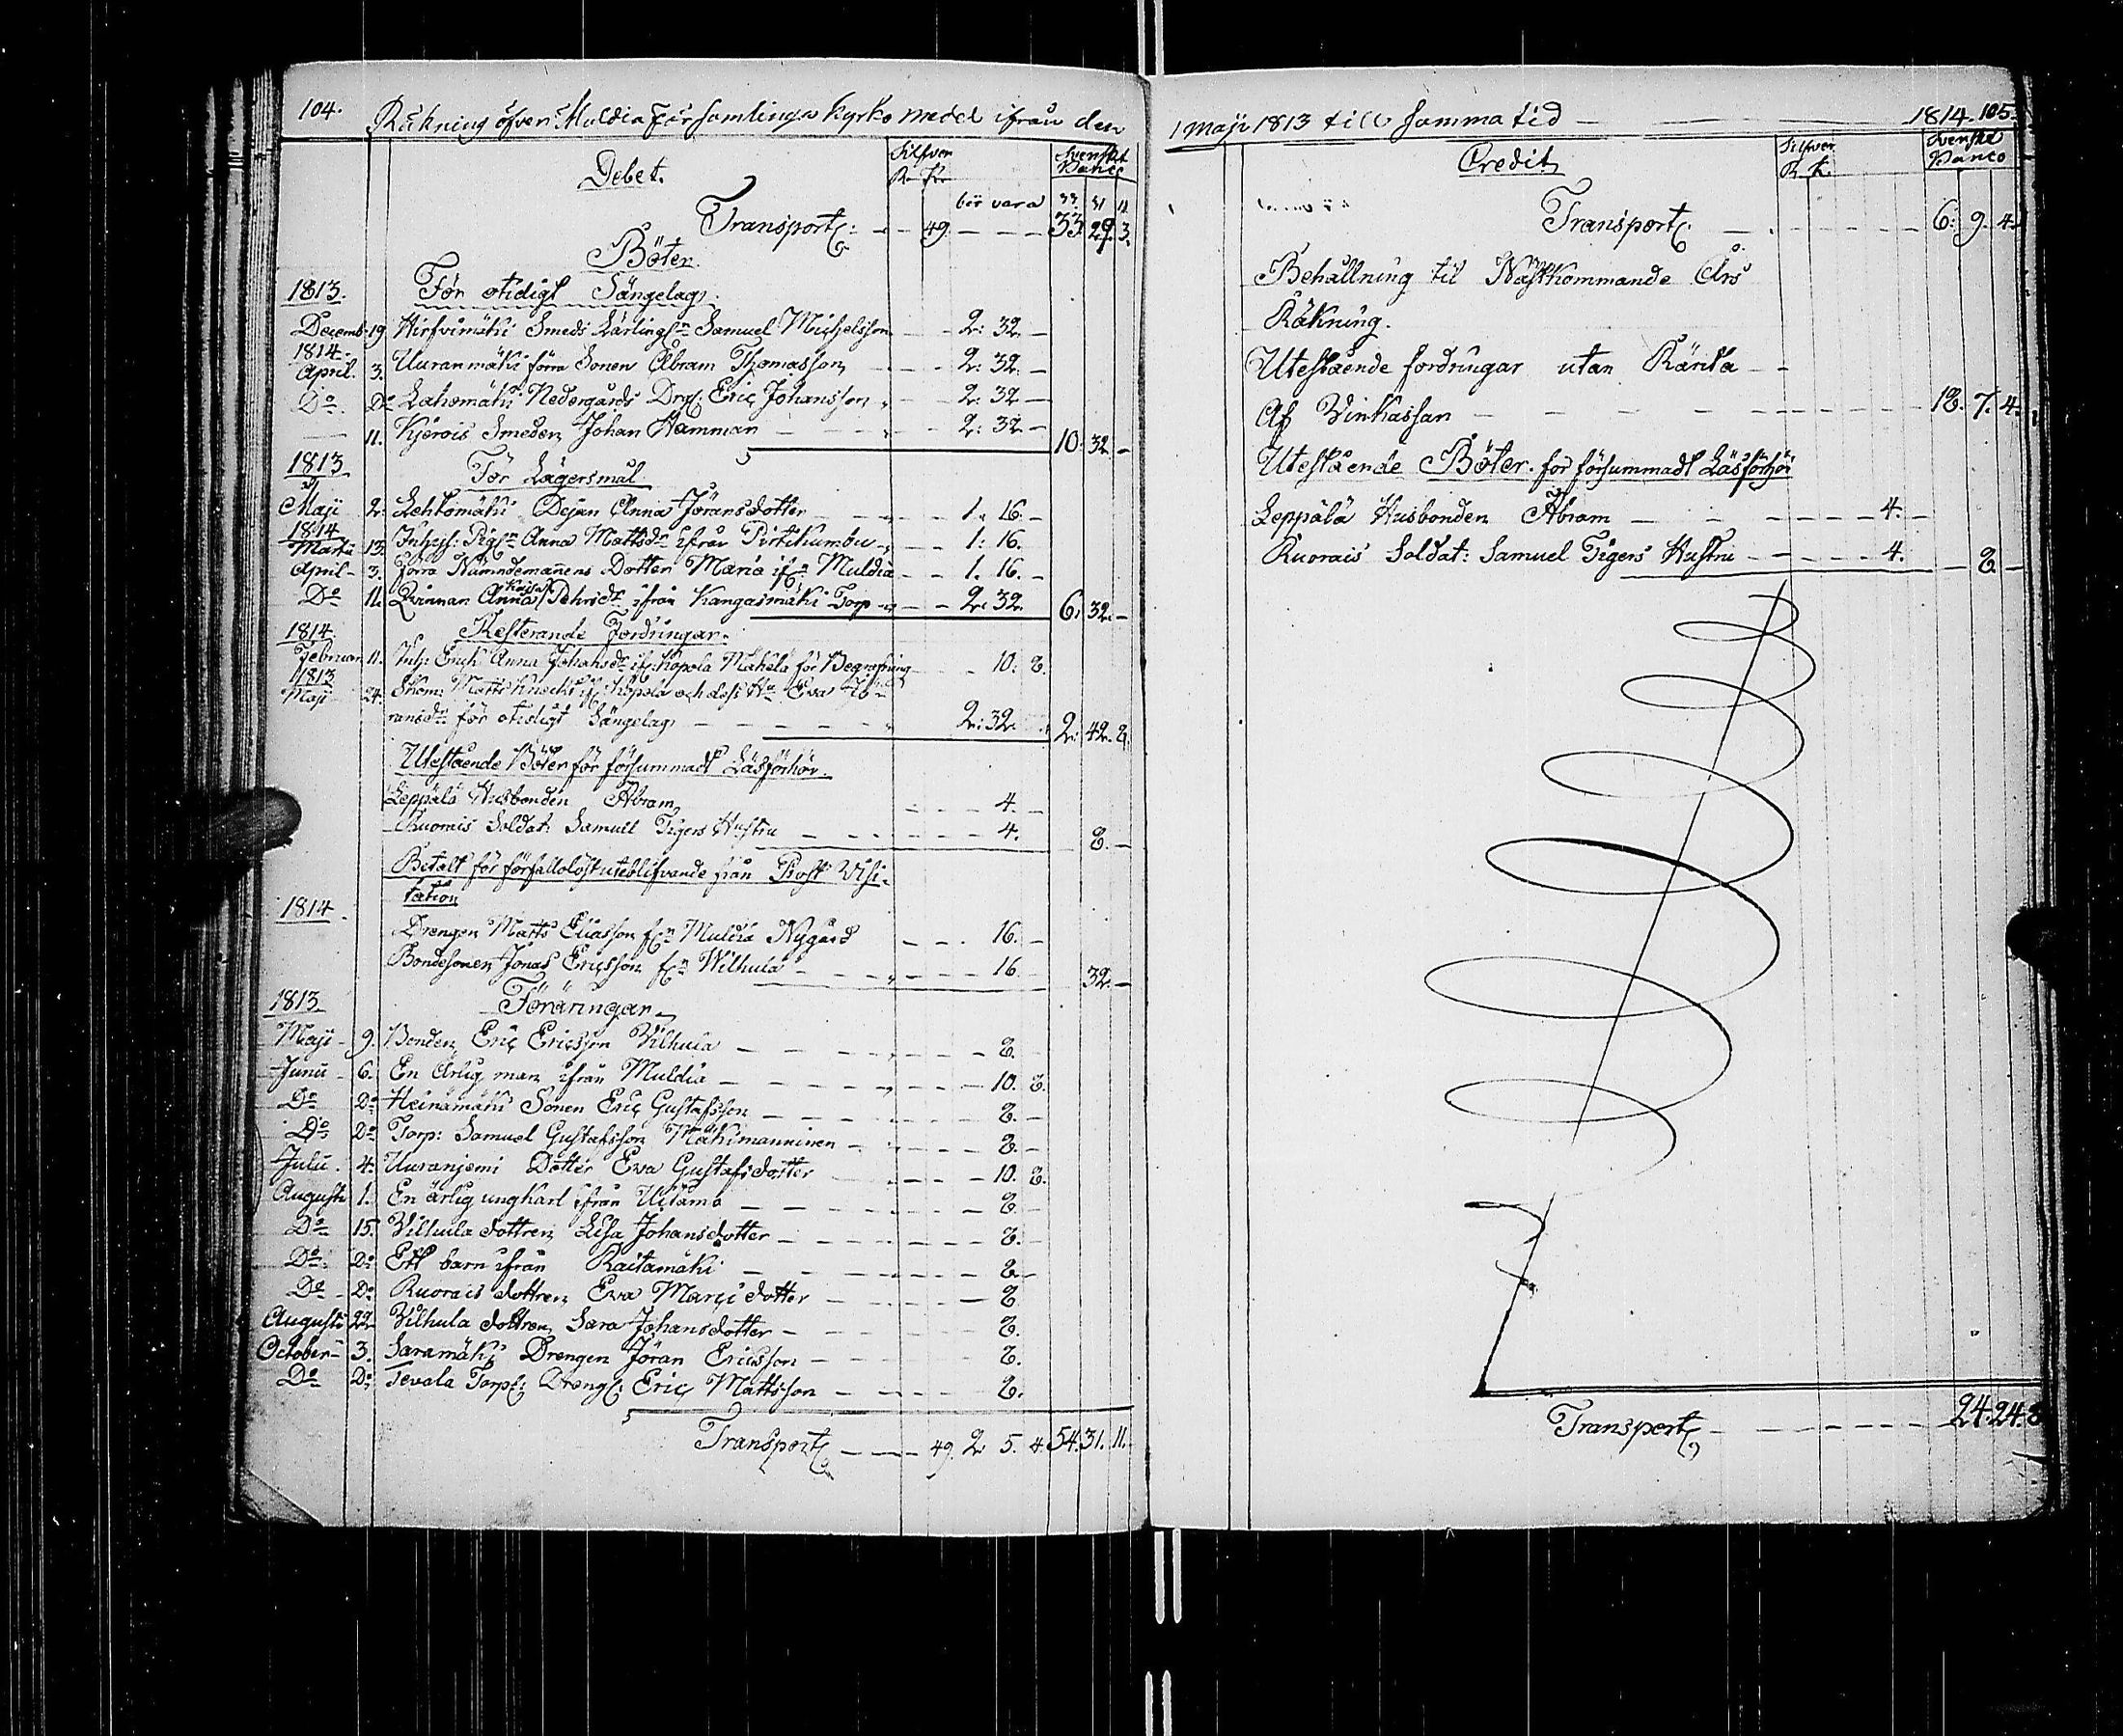 104. Räkning öfver Muldia Församlings Kyrko medel ifrån den
Debet. Silfver Svenskt
R. K. Banco
bör vara 33. 31 11
Transport: 49. 33. 29. 3.
Böter.
1813. För otidigt Sängelag:
Decemb. 19. Hirfvimäki Smeds Lärling Samuel Michelsson 2: 32 -
1814.
April. 3. Uuranmäki förra Sonen Abram Thomasson 2: 32 -
Do. Do Lahomäki Nedergårds Drg: Eric Johansson 2: 32 -
11. Kjerois Smeden Johan Hamman 2: 32 - 10: 32. -
1813. För Lägersmål
Maji 2. Lehtomäki Dejan Anna Jöransdotter 1. 16. -
1814
Martii 13. Inhys: Pig: Anna Mattsdr ifrån Pirtikumbu 1: 16. -
April 3. Förra Nämndemanens Dotter Maria ifr. Muldia 1. 16. -
Do 11. Qvinnan Anna Kaisa Pehrsdr ifrån Kangasmäki Torp 2. 32. 6. 32. -
1814. Resterande Fordringar.
Februar. 11. Inh: Enck: Anna Johansdr if. Kopola Mäkelä för Begrafning 10: 8.
1813
Maji 24. Skom: Matts if. Kopola och dess Hu Eva Jö-
ransdr för otidigt Sängelag 2: 32. 2. 42. 8.
Utestående Böter för försummadt Läsförhör.
Leppälä Husbonden Abram 4. -
Ruorais Soldat: Samuel Tigers Hustru 4. 8. -
Betalt för förfallolöst uteblifvande från Prost Visi-
tation
1814.
Drengen Matts Eliasson fr. Muldia Nygård 16. -
Bondesonen Jonas Ericsson fr. Wilhula 16 32. -
1813. Föräringar
Maji 9. Bonden Eric Ericsson Vilhula 8.
Junii 6. En Ärlig man ifrån Muldia 10. 8.
Do Do Heinämäki Sonen Eric Gustafsson 8. -
Do Do Torp: Samuel Gustafsson Mäkimanninen 8. -
Julii. 4. Uuranjemi Dotter Eva Gustafsdotter 10. 8.
Augusti 1. En ärlig ungkarl ifrån Uitamo 8
Do 15. Vilhula dottren Lisa Johansdotter 8.
Do Do Ett barn ifrån Raitamäki 8 -
Do Do Ruorais dottren Eva Marcidotter 8
Augusti 22 Vilhula dottren Sara Johansdotter 8.
October 3. Saramäki Drengen Jöran Ericsson 8.
Do Do Tevala Torp: Dreng: Eric Mattsson 8.
Transport 49. 2 5. 4. 54. 31. 11.
1 Maji 1813 till samma tid 1814. 105.
Credit Silfver Svenskt
R. K. Banco
Transport 6: 9. 4.
Behållning til Nästkommande Års
Räkning.
Utestående fordringar utan Ränta
Af Vinkassan 18. 7. 4.
Utestående Böter för försummadt Läsförhör
Leppälä Husbonden Abram 4.
Ruorais Soldat: Samuel Tigers Hustru 4. 8 -
Transport 24. 24. 8